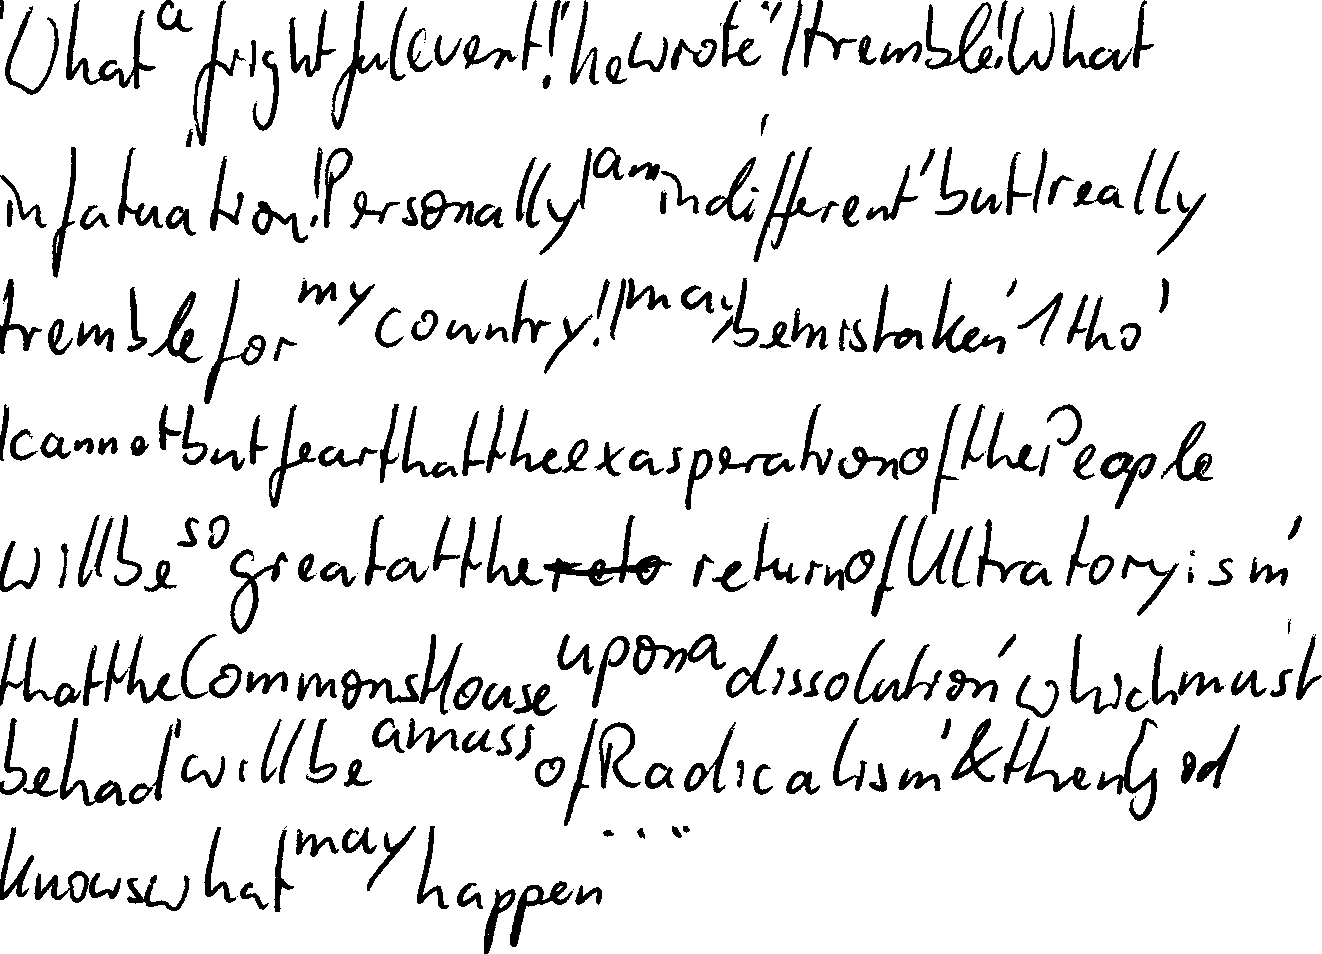 'What a frightful event!' he wrote "I tremble! What
infatuation! Personally I am indifferent' but I really
tremble for my country! I may be mistaken' 1 tho'
I cannot but fear that the exasperation of the People
will be so great at the reto return of Ultratoryism'
that the Commons House upon a dissolution' which must
be had' will be a mass of Radicalism' & then God
knows what may happen ..."